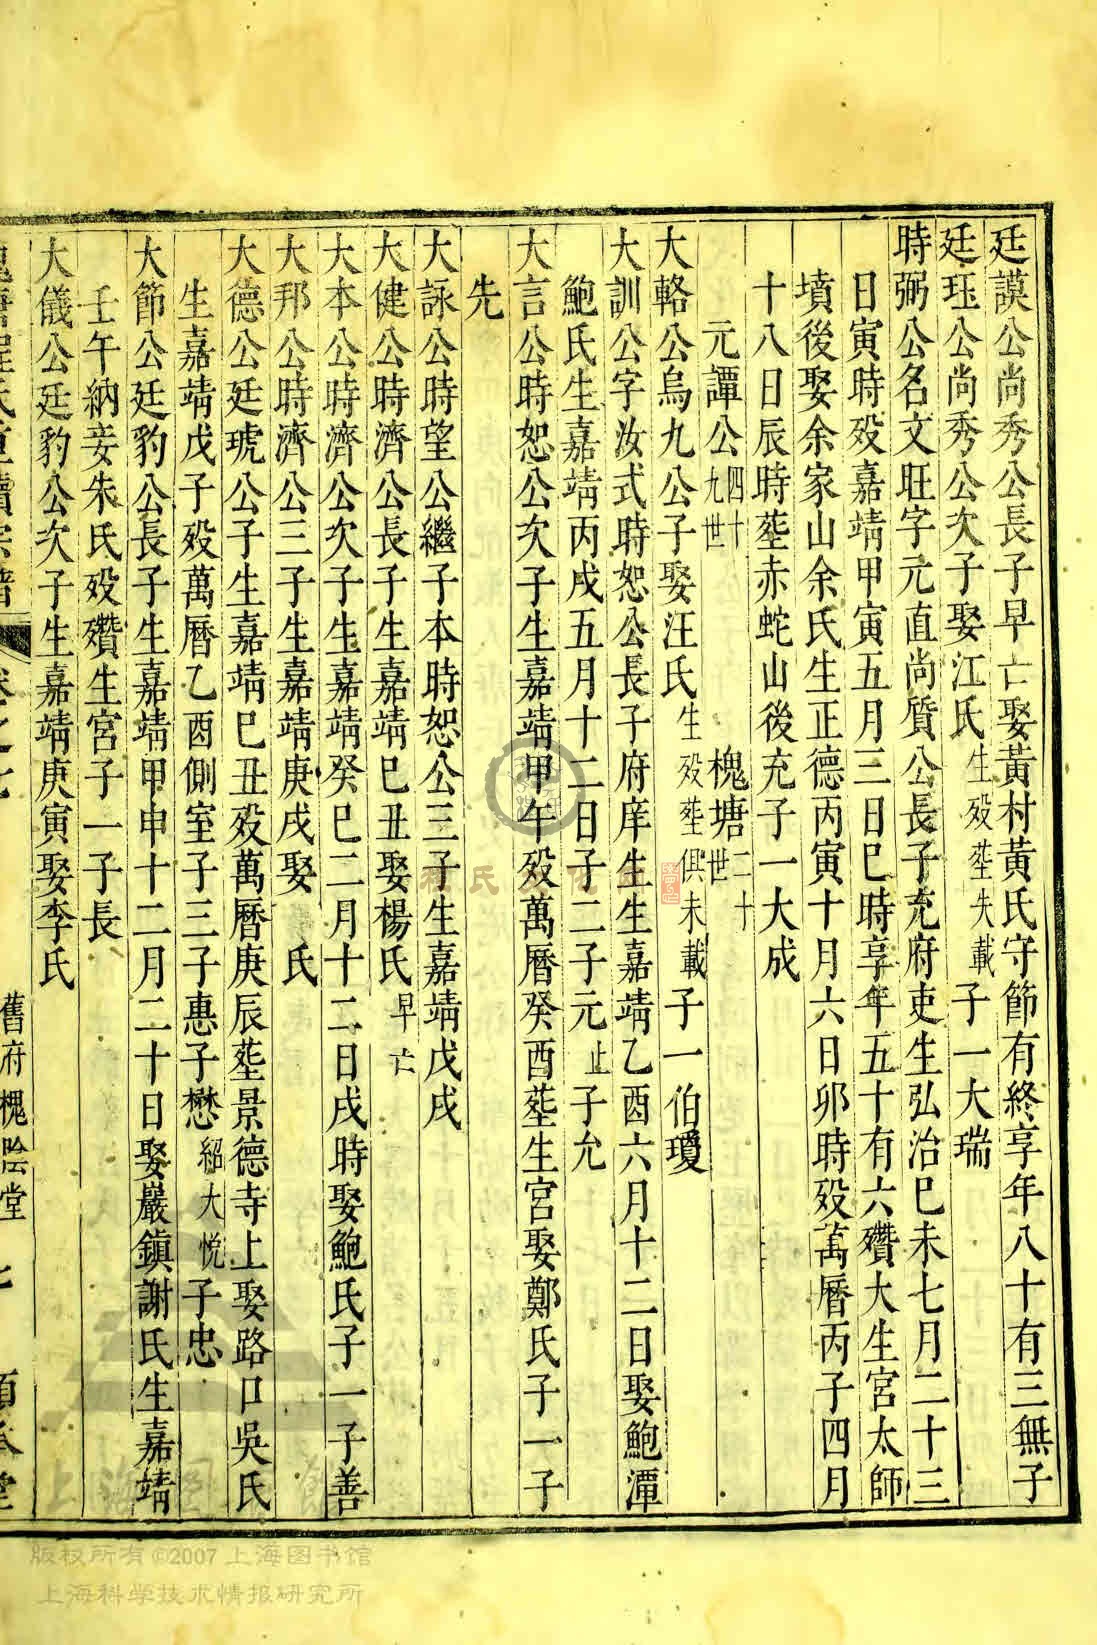 廷謨公尚秀公長子早亡娶黃村黃氏守節有終享年八十有三無子
廷珏公尚秀公次子娶江氏生殁塟失載子一大瑞
時弼公名文旺字元直尚質公長子充府吏生弘治巳未七月二十三
日寅時殁嘉靖甲寅五月三日巳時享年五十有六殯大生宮太師
墳後娶余家山余氏生正德丙寅十月六日卯時殁萬曆丙子四月
十八日辰時塟赤蛇山後充子一大成
元譚公四十九世 槐塘二十世
大輅公烏九公子娶汪氏生殁塟俱未載子一伯瓊
大訓公字汝式時恕公長子府庠生生嘉靖乙酉六月十二日娶鮑潭
鮑氏生嘉靖丙戌五月十二日子二子元止子允
大言公時恕公次子生嘉靖甲午殁萬曆癸酉塟生宮娶鄭氏子一子
先
大詠公時望公繼子本時恕公三子生嘉靖戊戌
大健公時濟公長子生嘉靖巳丑娶楊氏早亡
大本公時濟公次子生嘉靖癸巳二月十二日戌時娶鮑氏子一子善
大邦公時濟公三子生嘉靖庚戌娶 氏
大德公廷琥公子生嘉靖巳丑殁萬曆庚辰塟景德寺上娶路口吳氏
生嘉靖戊子殁萬曆乙酉側室子三子惠子懋紹大悅子忠
大節公廷豹公長子生嘉靖甲申十二月二十日娶巖鎮謝氏生嘉靖
壬午納妾朱氏殁殯生宮子一子長
大儀公廷豹公次子生嘉靖庚寅娶李氏
槐塘程氏重續宗譜 卷之七 舊府槐陰堂 七
版权所有©2007上海图书馆
上海科学技术情报研究所